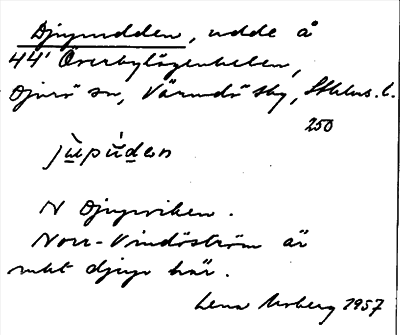 Djupudden, udde å
44' Överbylägenheten,
Djurö sn, Värmdö skg, Sthlms. l.
250
jùpúdən
N Djupviken.
Norr-Vindöström är
rakt djup här.
Lena Moberg 1957